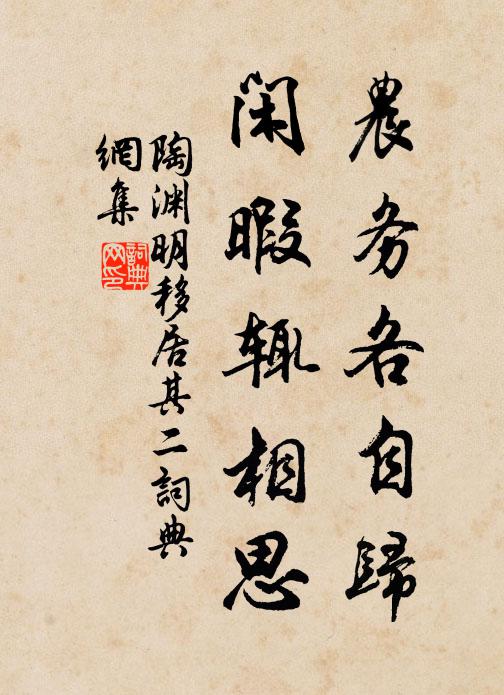 農务各自歸
閑暇辄相思
陶渊明移居其二詞典
網集
詞典
网印